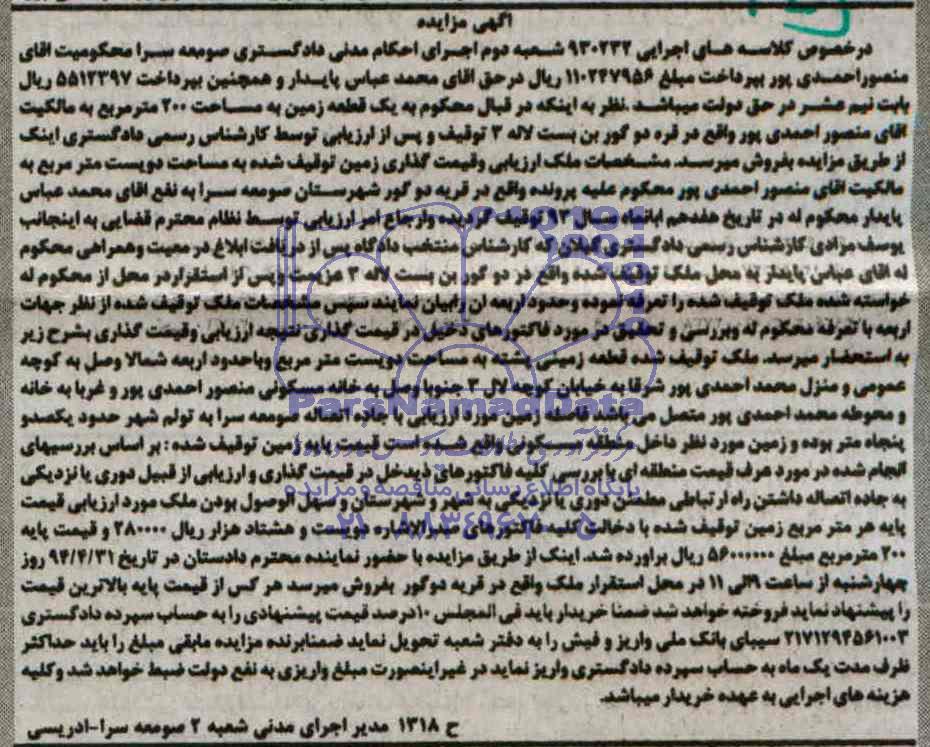 آگهی مزایده
درخصوص کلاسه های اجرایی ۹۳۰۲۳۲ شعبه دوم اجرای احکام مدنی دادگستری صومعه سرا محکومیت اقای
منصوراحمدی پور بپرداخت مبلغ ۱۱۰۲۴۷۹۵۶ ریال درحق اقای محمد عباس پایدار و همچنین بپرداخت ۵۵۱۲۳۹۷ ریال
بابت نیم عشر در حق دولت میباشد .نظر به اینکه در قبال محکوم به یک قطعه زمین به مساحت ۲۰۰ مترمربع به مالکیت
اقای منصور احمدی پور واقع در قره دو گور بن بست لاله ۳ توقیف و پس از ارزیابی توسط کارشناس رسمی دادگستری اینک
از طریق مزایده بفروش میرسد. مشخصات ملک ارزیابی وقیمت گذاری زمین توقیف شده به مساحت دویست متر مربع به
مالکیت اقای منصور احمدی پور محکوم علیه پرونده واقع در قریه دو گور شهرستان صومعه سرا به نفع اقای محمد عباس
پایدار محکوم له در تاریخ هفدهم ابانماه سال ۹۳ توقیف گردیده وارجاع امر ارزیابی توسط نظام محترم قضایی به اینجانب
یوسف مرادی کارشناس رسمی دادگستری گیلان که کارشناس منتخب دادگاه پس از دریافت ابلاغ در معیت وهمراهی محکوم
له اقای عباس پایدار به محل ملک توقیف شده واقع در دو گور بن بست لاله ۳ عزیمت وپس از استقراردر محل از محکوم له
خواسته شده ملک توقیف شده را تعرفه نموده وحدود اربعه ان رابیان نمایند سپس مشخصات ملک توقیف شده از نظر جهات
اربعه با تعرفه محکوم له وبررسی و تحقیق در مورد فاکتورهای دخیل در قیمت گذاری نتیجه ارزیابی وقیمت گذاری بشرح زیر
به استحضار میرسد. ملک توقیف شده قطعه زمینی پشته به مساحت دویست متر مربع وباحدود اربعه شمالا وصل به کوچه
عمومی و منزل محمد احمدی پور شرقا به خیابان کوچه لال ۳ جنوبا وصل به خانه مسکونی منصور احمدی پور و غربا به خانه
و محوطه محمد احمدی پور متصل می باشد. فاصله زمین مورد ارزیابی با جاده اتصاله صومعه سرا به تولم شهر حدود یکصدو
پنجاه متر بوده و زمین مورد نظر داخل منطقه مسکونی واقع شده است قیمت پایه زمین توقیف شده : بر اساس بررسیهای
انجام شده در مورد عرف قیمت منطقه ای با بررسی کلیه فاکتورهای ذیدخل در قیمت گذاری و ارزیابی از قبیل دوری یا نزدیکی
به جاده اتصاله داشتن راه ارتباطی مطمئن دوری یا نزدیکی به شهر و شهرستان و سهل الوصول بودن ملک مورد ارزیابی قیمت
پایه هر متر مربع زمین توقیف شده با دخالت کلیه فاکتورهای صدرالاشاره دویست و هشتاد هزار ریال ۲۸۰۰۰۰ و قیمت پایه
۲۰۰ مترمربع مبلغ ۵۶۰۰۰۰۰۰ ریال براورده شد. اینک از طریق مزایده با حضور نماینده محترم دادستان در تاریخ ۹۴/۴/۳۱ روز
چهارشنبه از ساعت ۹الی ۱۱ در محل استقرار ملک واقع در قریه دوگور بفروش میرسد هر کس از قیمت پایه بالاترین قیمت
را پیشنهاد نماید فروخته خواهد شد ضمنا خریدار باید فی المجلس ۱۰درصد قیمت پیشنهادی را به حساب سپرده دادگستری
۲۱۷۱۲۹۴۵۶۱۰۰۳ سیبای بانک ملی واریز و فیش را به دفتر شعبه تحویل نماید ضمنابرنده مزایده مابقی مبلغ را باید حداکثر
ظرف مدت یک ماه به حساب سپرده دادگستری واریز نماید در غیر اینصورت مبلغ واریزی به نفع دولت ضبط خواهد شد وکلیه
هزینه های اجرایی به عهده خریدار میباشد.
ح ۱۳۱۸ مدیر اجرای مدنی شعبه ۲ صومعه سرا-ادریسی
ParsNamadData
پایگاه اطلاع رسانی مناقصه و مزایده
۰۲۱-۸۸۳۴۹۶۷۰-۵